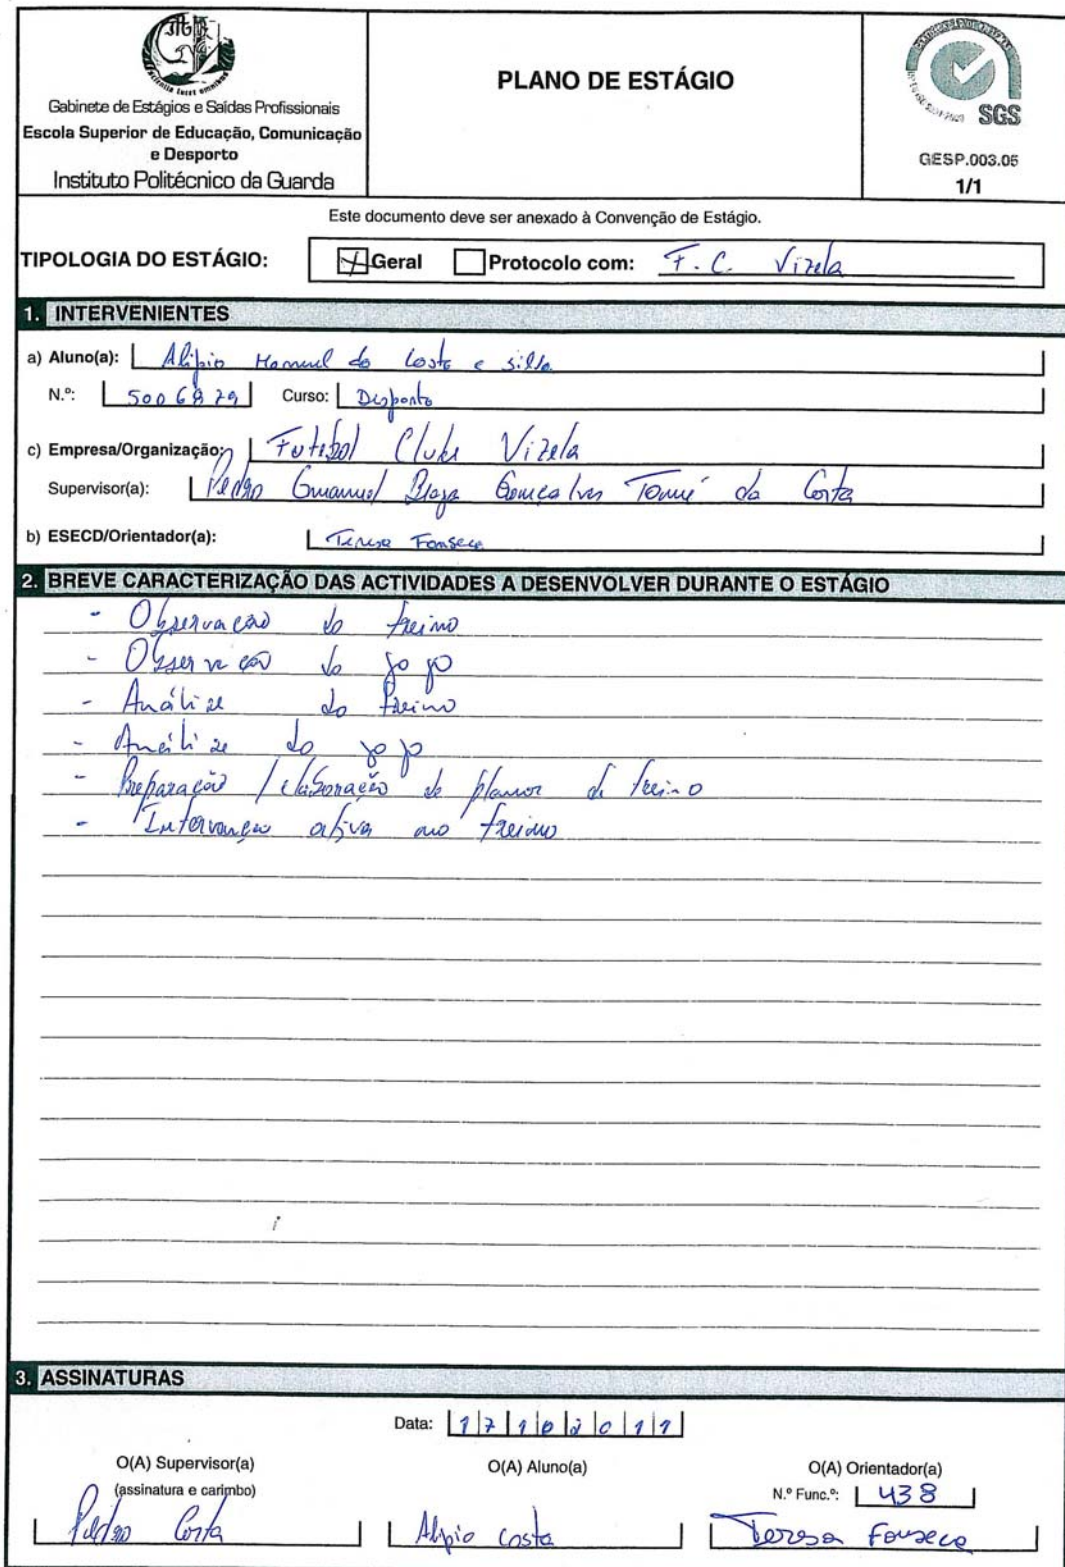 Gabinete de Estágios e Saídas Profissionais
Escola Superior de Educação, Comunicação
e Desporto
Instituto Politécnico da Guarda
PLANO DE ESTÁGIO
SGS
GESP.003.05
1/1
Este documento deve ser anexado à Convenção de Estágio.
TIPOLOGIA DO ESTÁGIO: Geral Protocolo com: F. C. Vizela
1. INTERVENIENTES
a) Aluno(a): Alípio Manuel da Costa e Silva
N.º: 5006879 Curso: Desporto
c) Empresa/Organização: Futebol Clube Vizela
Supervisor(a): Pedro Emanuel Gonçalves Tomé da Costa
b) ESECD/Orientador(a): Teresa Fonseca
2. BREVE CARACTERIZAÇÃO DAS ACTIVIDADES A DESENVOLVER DURANTE O ESTÁGIO
- Observação do treino
- Observação do jogo
- Análise do treino
- Análise do jogo
- Preparação / elaboração de planos de treino
- Intervenção ativa no treino
3. ASSINATURAS
Data: 17102011
O(A) Supervisor(a)
(assinatura e carimbo)
Pedro Costa
O(A) Aluno(a)
Alípio Costa
O(A) Orientador(a)
N.º Func.º: 438
Teresa Fonseca